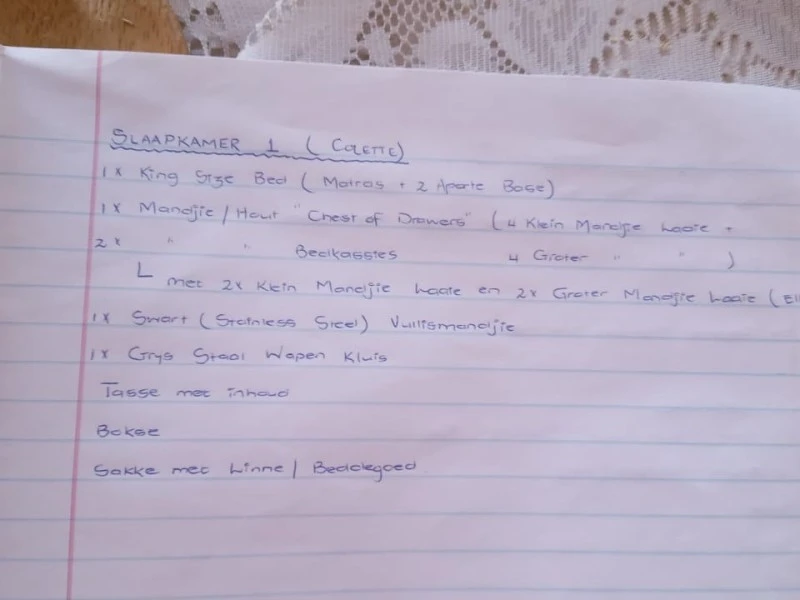 SLAAPKAMER 1 (COLETTE)
1x King Size Bed (Matras + 2 Aparte Base)
1x Mandjie/Hout "Chest of Drawers" (4 Klein Mandjie Laaie +
2x " " Bedkassies 4 Groter " " )
L met 2x Klein Mandjie Laaie en 2x Groter Mandjie Laaie (
1x Swart (Stainless Steel) Vullismandjie
1x Grys Staal Wapen Kluis
Tasse met inhoud
Bokse
Sakke met Linne/Beddegoed